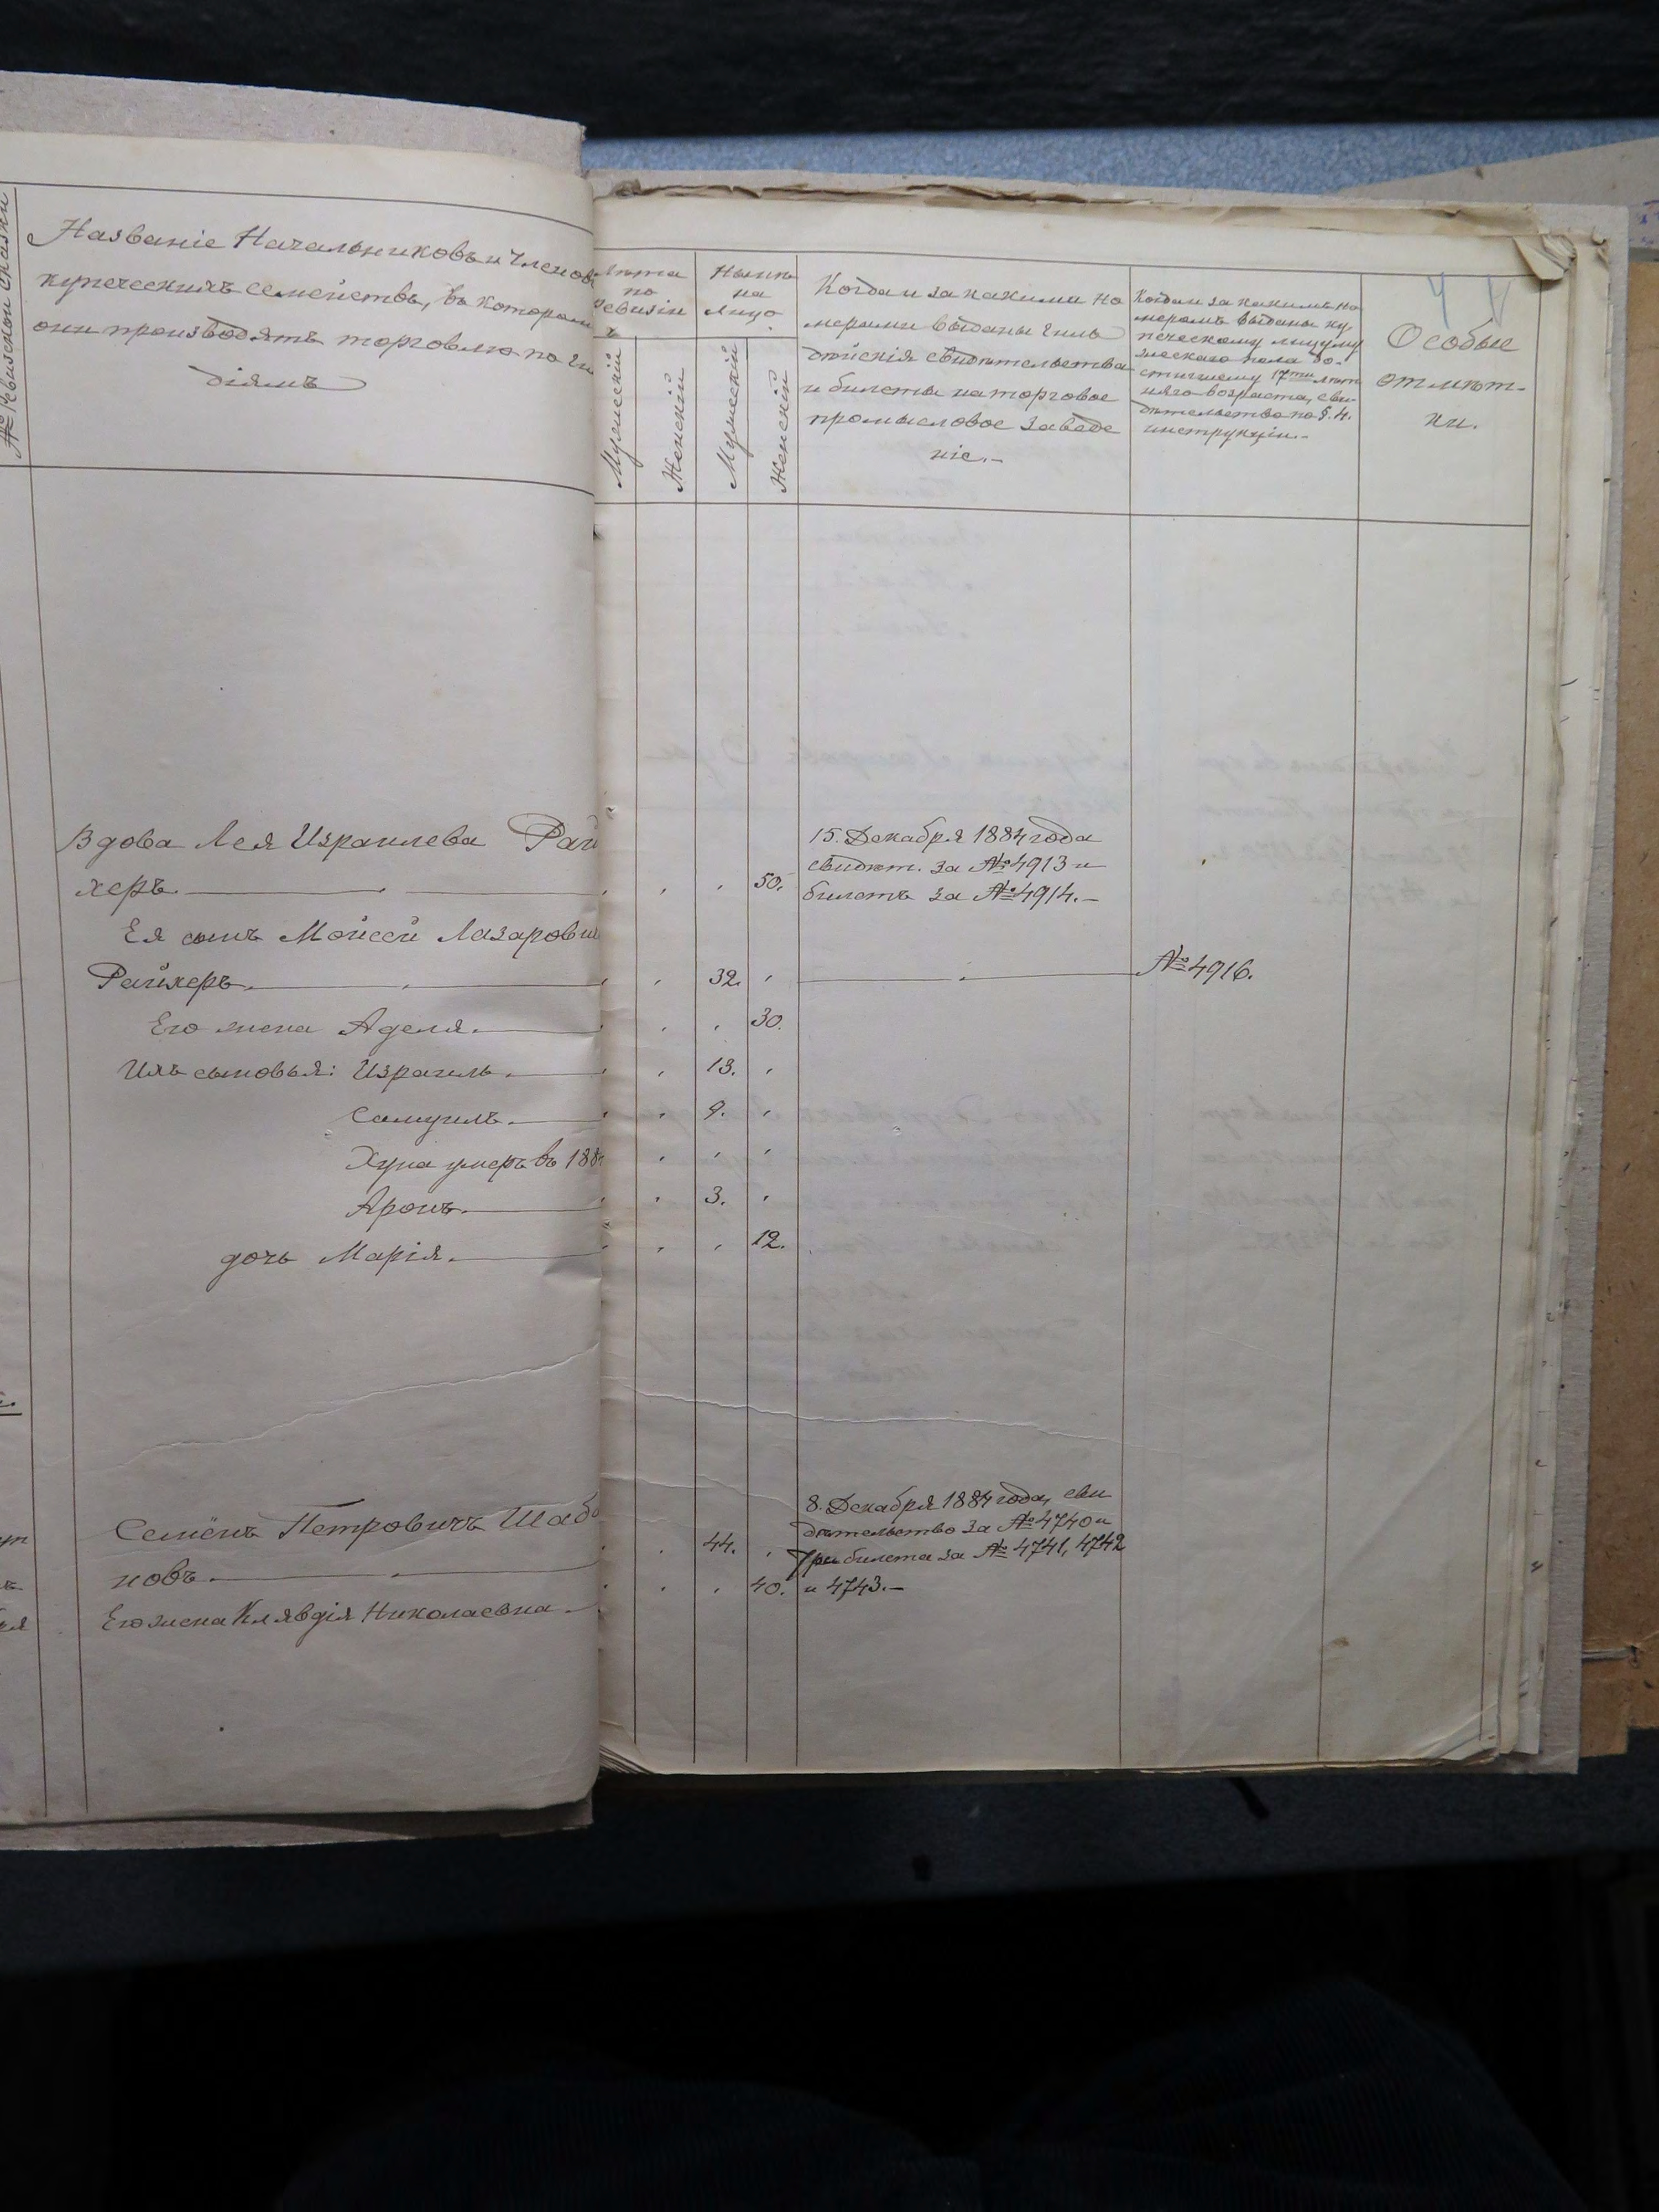 № Ревизской сказки
Названіе Начальниковъ и Членовъ
купеческихъ семействъ, въ котором
они производятъ торговлю по ги
діямъ
Лѣта
по
ревизіи
Нынѣ
на
лицо
Мужескій
Женскій
Мужескій
Женскій
Когда и за какими но
мерами выданы гиль
дейскія свидѣтельства
и билеты на торговое
промысловое заведе
ніе.-
Когда и за какимъ но
меромъ выданы ку
печескому лицу му
жескаго пола до-
стигшему 17ти лѣт
няго возраста, сви-
дѣтельство по §. 4.
инструкціи.-
4
Особые
отмѣт-
ки.
Вдова Лея Израилева Рай
херъ. 50.
15. Декабря 1884 года
свидѣт. за № 4913 и
билетъ за № 4914.-
Ея сынъ Мойсей Лазарови
Райхеръ. 32. № 4916.
Его жена Аделя. 30.
Ихъ сыновья: Израиль. 13.
Самуилъ. 9.
Хуна умеръ въ 188
Аронъ. 3.
дочь Марія. 12.
Семёнъ Петровичъ Шаб
новъ. 44.
Его жена Клявдія Николаевна. 40.
8. Декабря 1884 года, сви
дѣтельство за № 4740 и
три билета за № 4741, 4742
и 4743.-